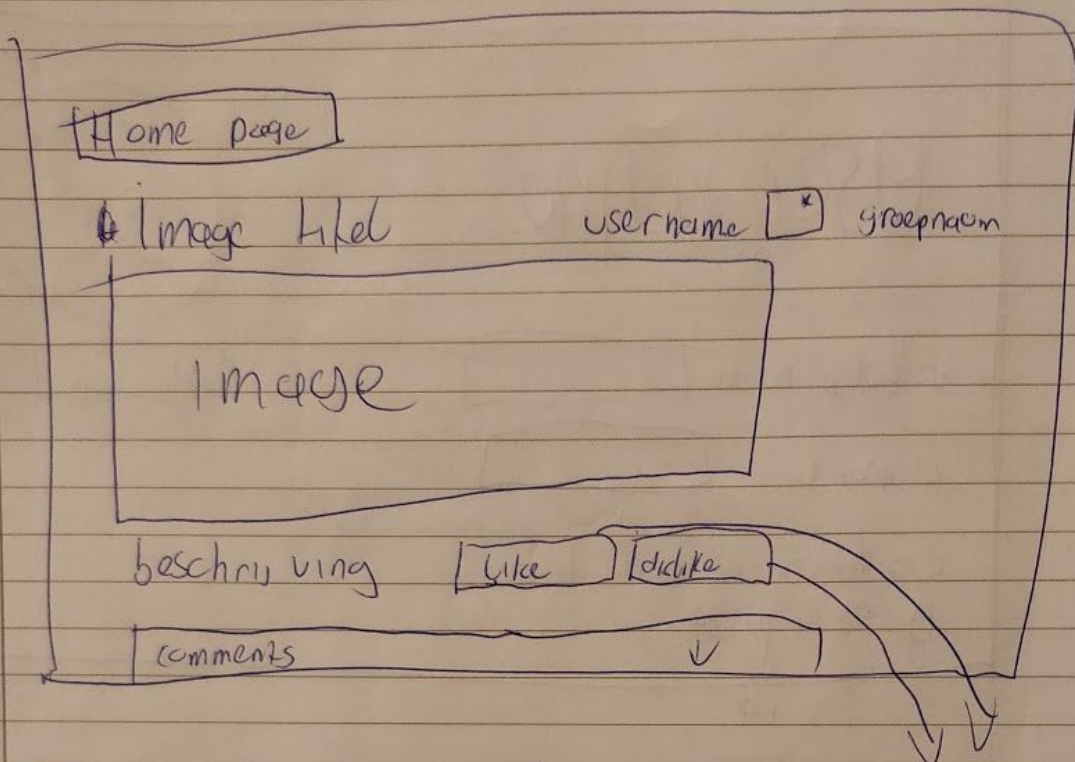 Home page
Image titel username * groepnaam
Image
beschrijving like dislike
comments